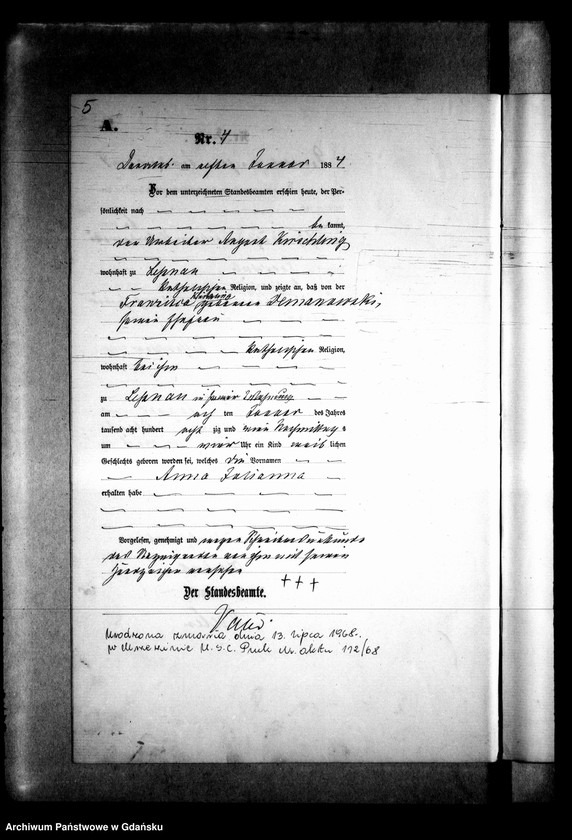 5
A.
Nr. 4
am Januar 1884
Vor dem unterzeichneten Standesbeamten erschien heute, der Per-
sönlichkeit nach
be kannt,
der Arbeiter August Kirschling
wohnhaft zu Lesnau
katholischer Religion, und zeigte an, daß von der
Franziska Kirschling geborene Demanowski,
seiner Ehefrau
katholischer Religion,
wohnhaft bei ihm
zu Lesnau in seiner Wohnung
am ten Januar des Jahres
tausend acht hundert acht zig und vier Nachmittags
um Uhr ein Kind weib lichen
Geschlechts geboren worden sei, welches die Vornamen
Anna Julianna
erhalten habe
Vorgelesen, genehmigt und wegen Schreibensunkunde
des Anzeigenden von ihm mit seinem
Handzeichen versehen
+++
Der Standesbeamte.
Urodzona zmarła dnia 13. lipca 1968.
w U.S.C. Puck Nr. aktu 112/68
Archiwum Państwowe w Gdańsku